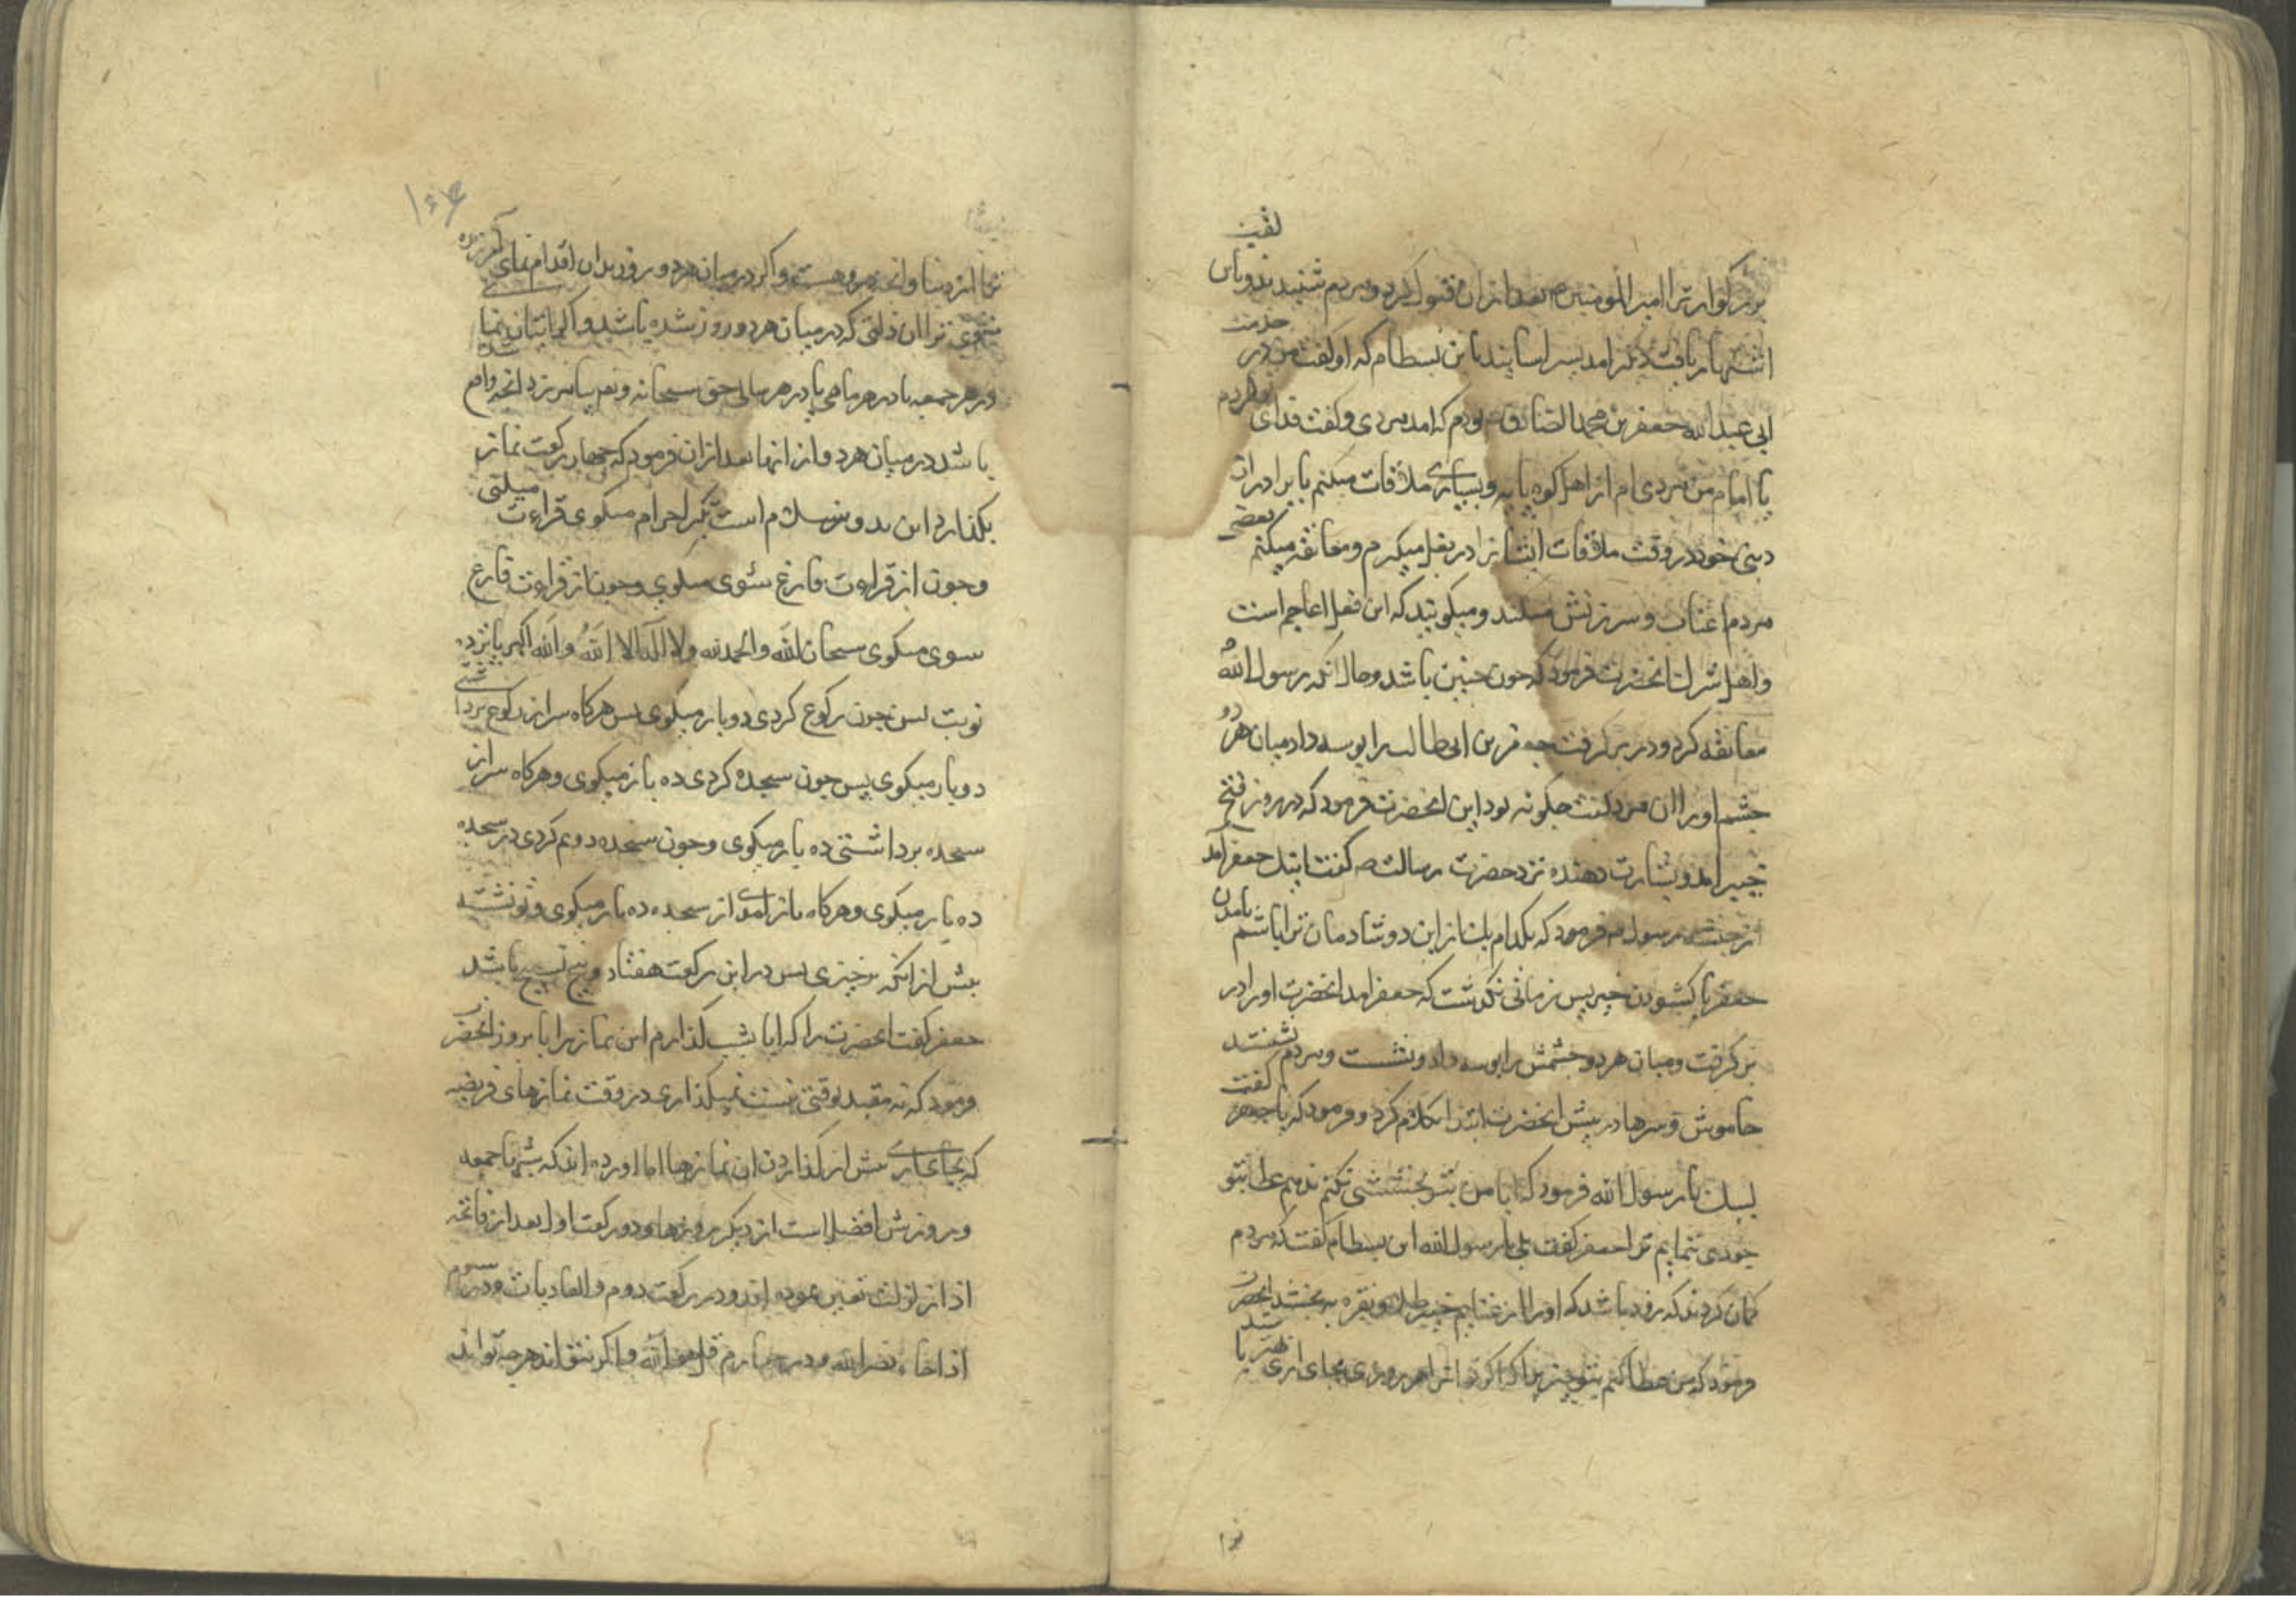 بزرکوار ترا امیر المومنین م بعد از ان قبول کرد و مردم شنیدند و باین لقب
اشتهار یافت دیکر امد بسراسانید باین بسطام که او کفت من در خدمت
ابی عبدالله جعفر بن محمد الصادق بودم که امد مردی و کفت فدای تو کردم
یا امام من مردی ام از اهل کوه پایه و بسیاری ملاقات میکنم با برادران
دینی خود در وقت ملاقات ایشانرا در بغل میکیرم و معانقه میکنم بعضی
مردم اعتاب و سرزنش میکنند و میکویند که این فعل اعاجم است
و اهل شرک انحضرت فرمود که چون چنین باشد و حال انکه رسول الله
معانقه کرد و در بر کرفت جعفر بن ابی طالب را بوسه داد میان هر دو
چشم او را ان مرد کفت چکونه بود این انحضرت فرمود که در روز فتح
خیبر امد و بشارت دهنده نزد حضرت رسالت ص کفت اینک جعفر آمد
از حبشه رسول ص فرمود که بکدام یک از این دو شادمان تر باشم بامدن
جعفر یا کشودن خیبر پس زمانی نکذشت که جعفر امد انحضرت او را در
بر کرفت و میان هر دو چشمش را بوسه داد و نشست و مردم نشستند
خاموش و سرها در پیش انحضرت ابتدا بکلام کرد و فرمود که یا جعفر کفت
لبیک یا رسول الله فرمود که ایا من بتو بخششی نکنم ندهم عطا بتو
جودی ننمایم ترا جعفر کفت بلی یا رسول الله ابن بسطام کفت که مردم
کمان کردند که زود باشد که او را از غنایم خیبر طلا و نقره بخشد انحضرت
فرمود که من عطا کنم بتو چیزی را که اکر هر روزی بجای اری بهتر باشد
ترا از دنیا و انچه در و هست و اکر در میان هر دو روز بدان اقدام نمای امرزیده
شوی ترا ان ذلتی که در میان هر دو روز شده باشد و اکر اتیان نمای
در هر جمعه یا در هر ماهی یا در هر سالی حق سبحانه و تعم بیامرزد انچه واقع شده
باشد در میان هر دو از انها بعد از ان فرمود که چهار رکعت نماز
بکذارد این بدو سلام است تکبر احرام میکوی قراءت میکنی
و چون از قراءت فارغ شوی میکوی و چون از قراءت فارغ
سوی میکوی سبحان الله والحمد لله ولا اله الا الله والله اکبر پانزده
نوبت پس چون رکوع کردی ده بار میکوی پس هرکاه سر از رکوع برداشتی
ده بار میکوی پس چون سجده کردی ده بار میکوی و هرکاه سر از
سجده برداشتی ده بار میکوی و چون سجده دوم کردی در سجده
ده بار میکوی و هرکاه باز امدی از سجده ده بار میکوی و تو نشسته
پیش از انکه برخیزی پس در این رکعت هفتاد و پنج تسبیح باشد
جعفر کفت انحضرت را که ایا بشب کذارم این نماز را یا بروز انحضرت
فرمود که نه مقید بوقتی نیست نمیکذاری در وقت نمازهای فریضه
که بجای اری پیش از کذاردن ان نمازها اما اورده اند که شب جمعه
و روزش افضل است از دیکر روزها و در رکعت اول بعد از فاتحه
اذا زلزلت تعین نموده اند و در رکعت دوم والعادیات و در سوم
اذا جاء نصر الله و در چهارم قل هو الله و اکر نتواند هرچه تواند